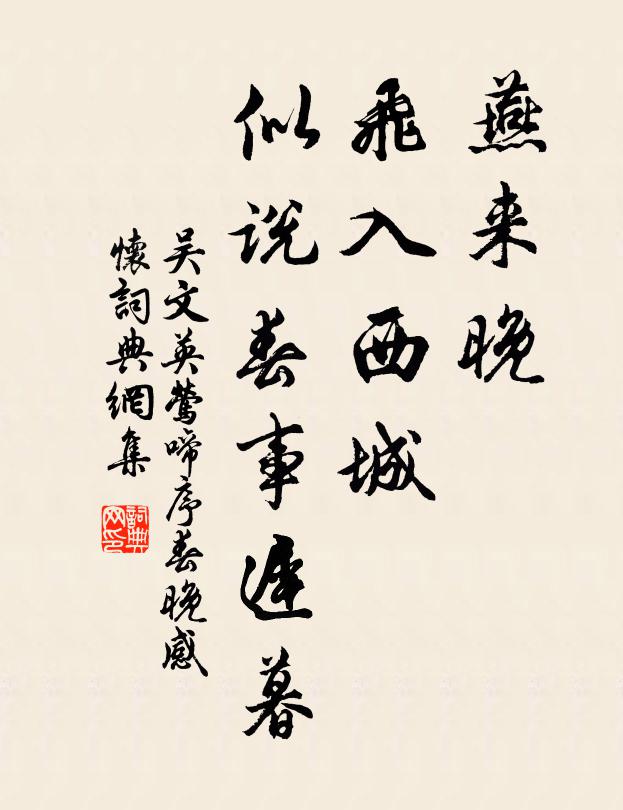 燕来晚
飛入西城
似说春事遲暮
吴文英鶯啼序春晚感
懷詞典網集
詞典
网印